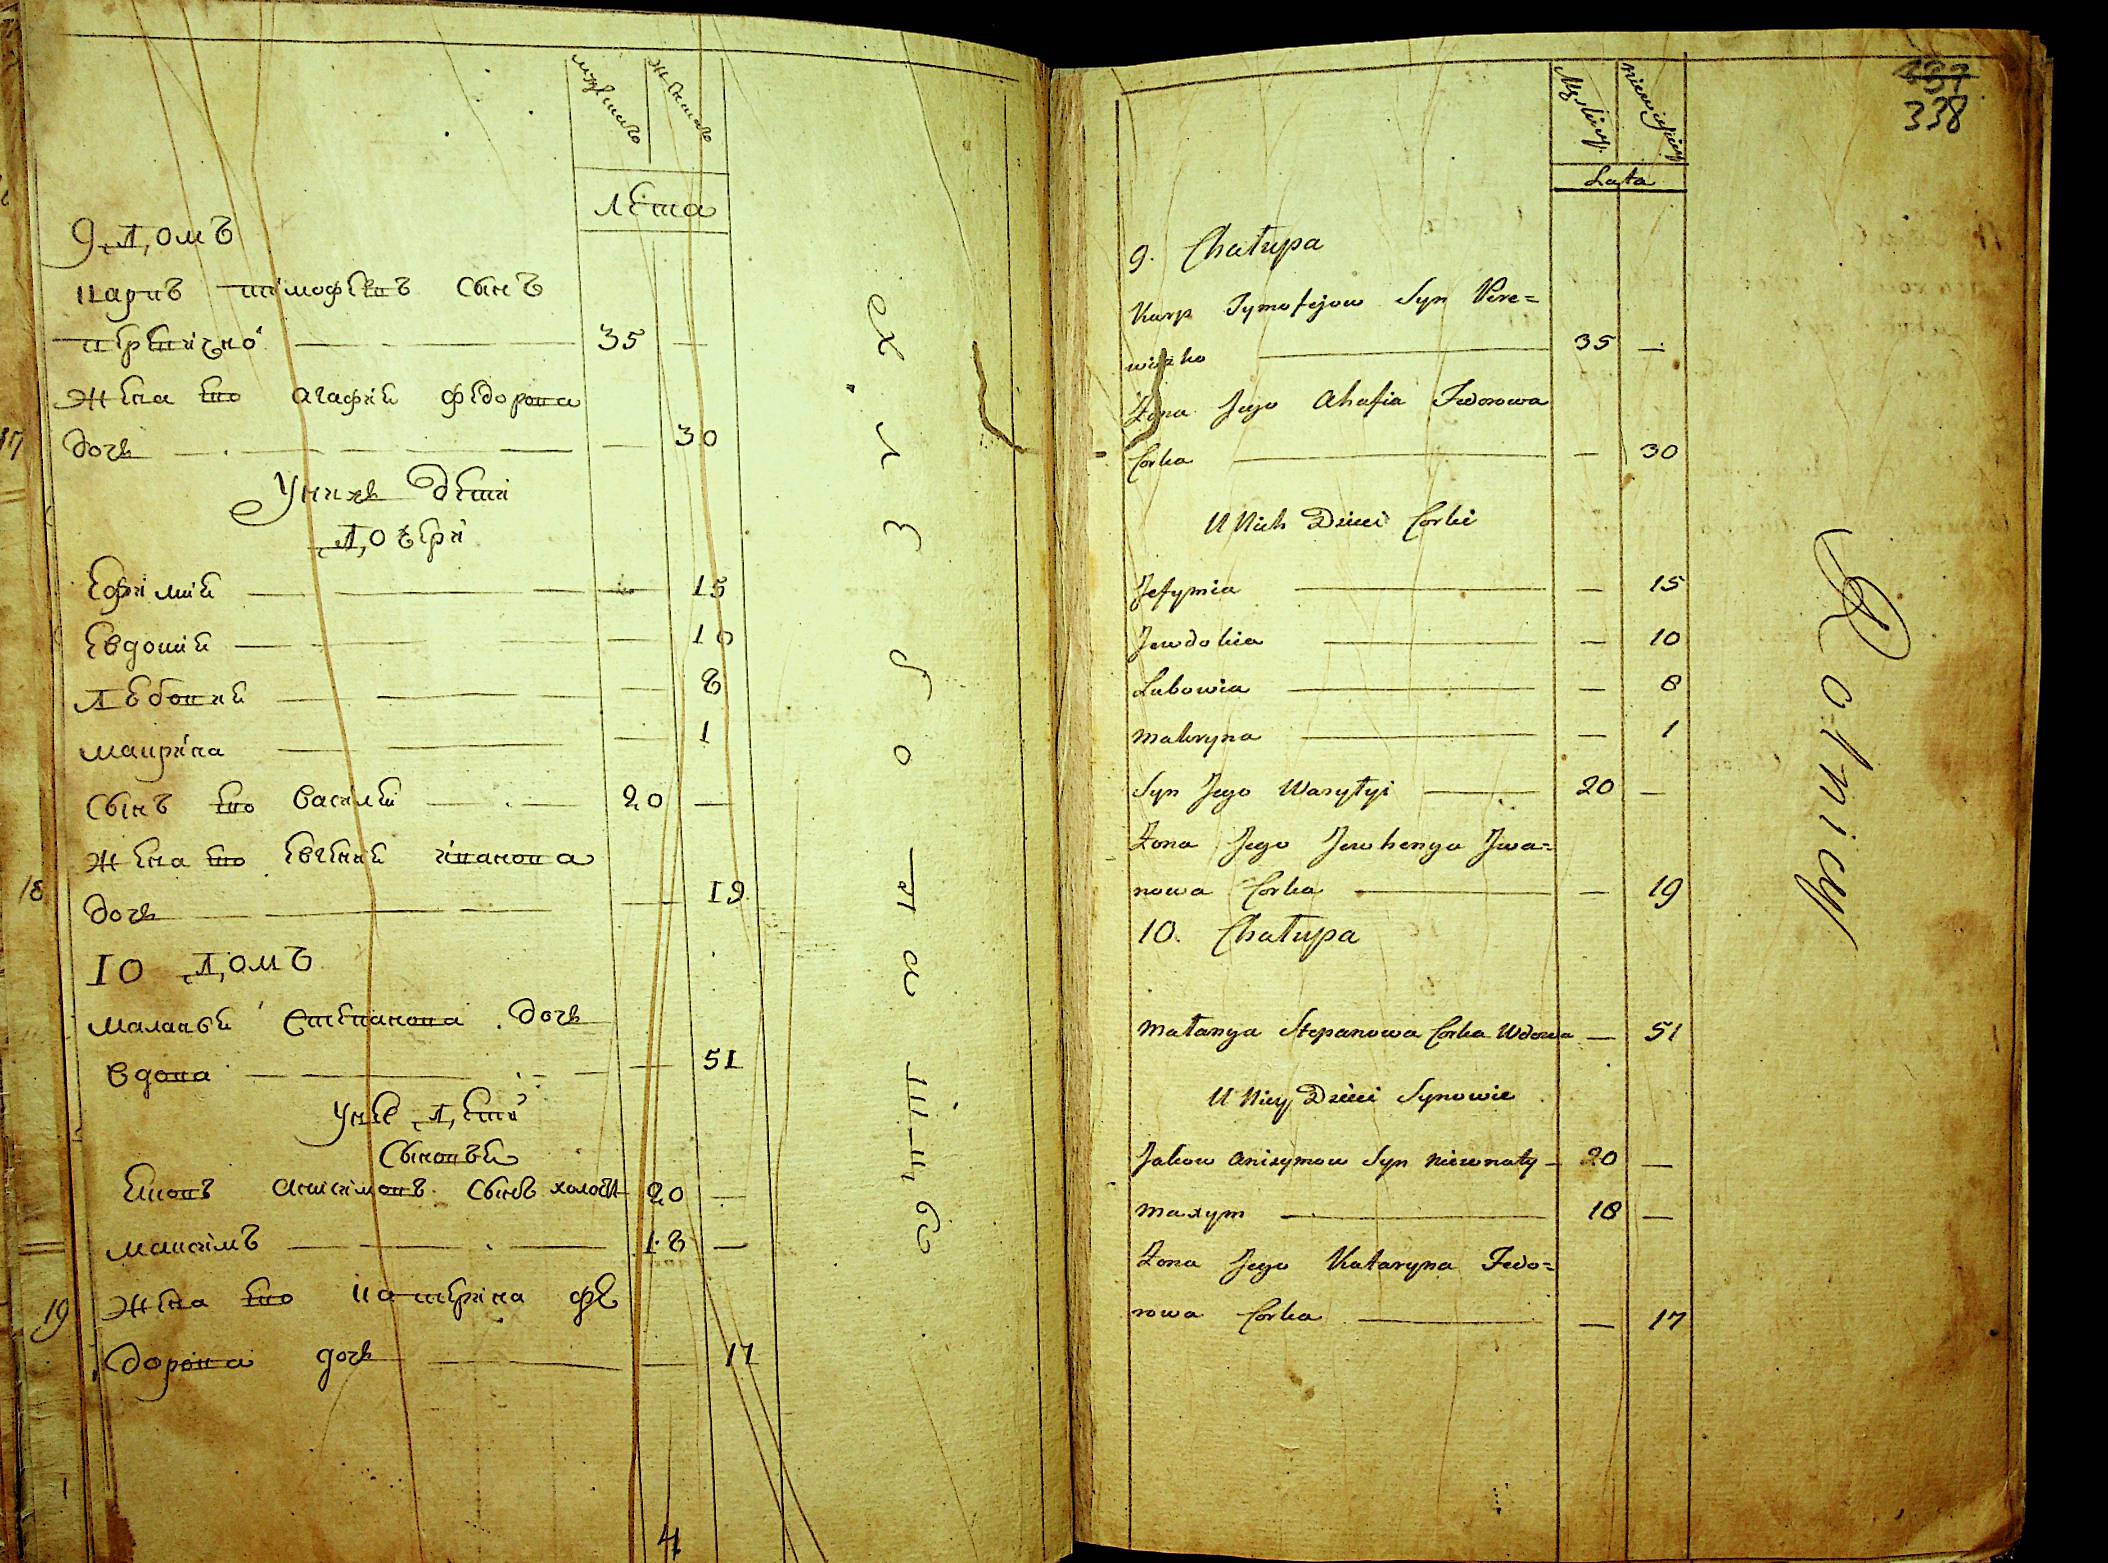 мужеска
женска
лета
9 Домъ
Карпъ тимофеевъ сынъ
веревичко 35 —
жена его агафия федорова
17 дочь — 30
У них дети
Дочери
Ефимия — 15
Евдокия — 10
Любовия — 8
макрина — 1
Сынъ его василей 20 —
жена его евгения иванова
18 дочь — 19
10 Домъ
маланья Степанова дочь
вдова — 51
У нее Дети
Сыновья
Яковъ анисимовъ сынъ холост 20 —
максимъ 18 —
жена его катерина фе
19 дорова дочь — 17
4
хлебопашцы
137
338
Męzkiey
niewieskiey
Lata
9. Chałupa
Karp Tymofejow Syn Were=
wiczko 35 —
Żona Jego Ahafia Fedorowa
Corka — 30
U Nich Dzieci Corki
Jefymia — 15
Jewdokia — 10
Lubowia — 8
Makryna — 1
Syn Jego Wasyłyi 20 —
Żona Jego Jewhenya Iwa=
nowa Corka — 19
10. Chałupa
Małanya Stepanowa Corka Wdowa — 51
U Niey Dzieci Synowie
Jakow Anisymow Syn Nieżonaty 20 —
Maxym 18 —
Żona Jego Kataryna Fedo=
rowa Corka — 17
Rolnicy